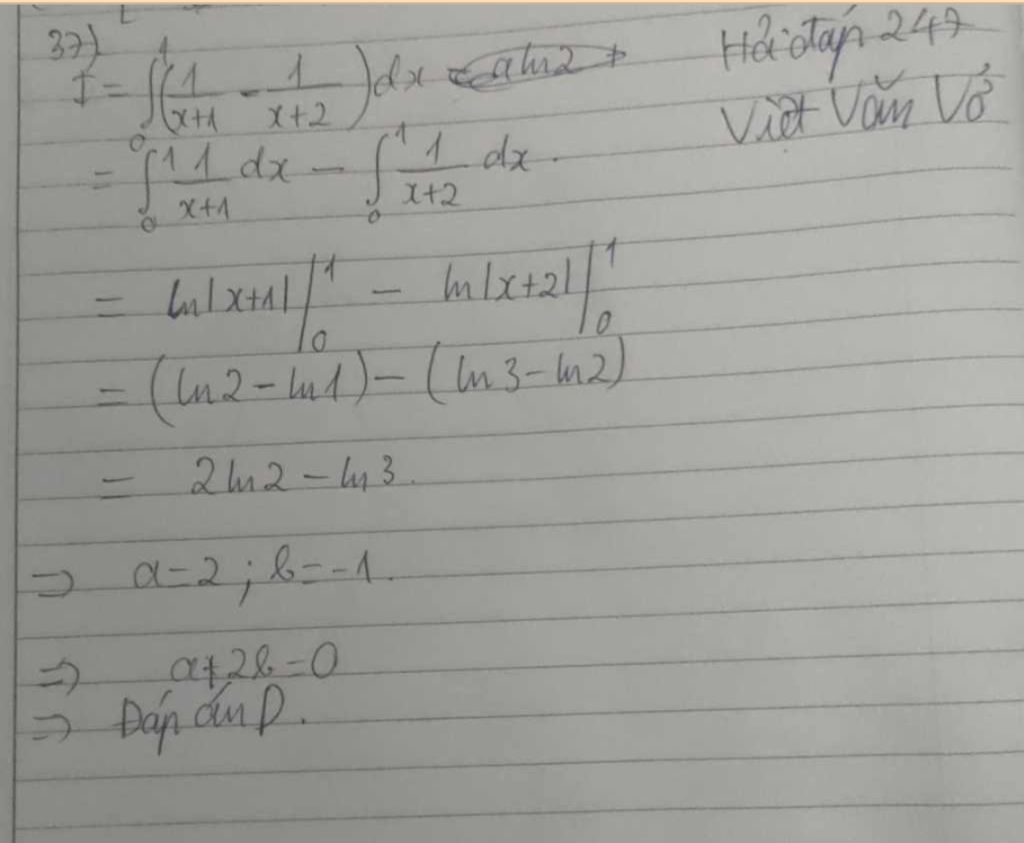 37)
I = ∫₀¹ (1/(x+1) - 1/(x+2)) dx = aln2 +
Hỏi đáp 247
Việt Văn Vở
= ∫₀¹ 1/(x+1) dx - ∫₀¹ 1/(x+2) dx.
= ln|x+1| |₀¹ - ln|x+2| |₀¹
= (ln2 - ln1) - (ln3 - ln2)
= 2ln2 - ln3.
=> a=2; b=-1.
=> a+2b=0
=> Đáp án D.